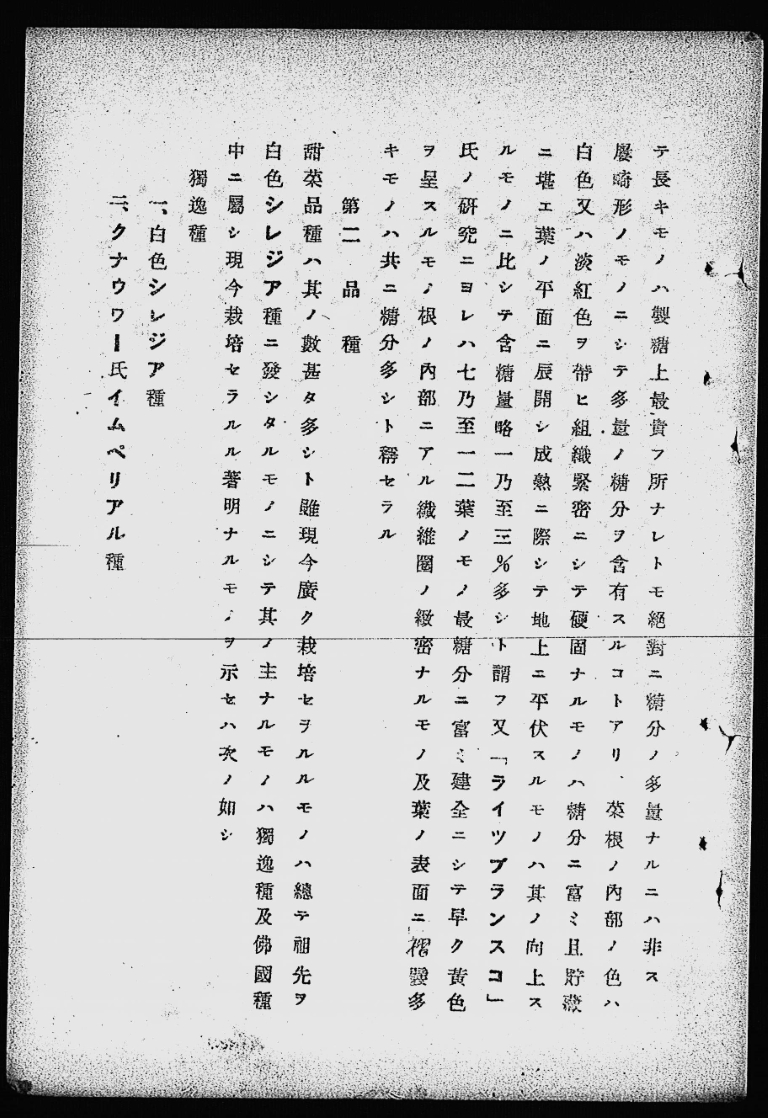 テ長キモノハ製糖上最貴フ所ナレトモ絕對ニ糖分ノ多量ナルニハ非ス
屢畸形ノモノニシテ多量ノ糖分ヲ含有スルコトアリ、菜根ノ內部ノ色ハ
白色又ハ淡紅色ヲ帶ヒ組織緊密ニシテ硬固ナルモノハ糖分ニ富ミ且貯藏
ニ堪エ葉ノ平面ニ展開シ成熟ニ際シテ地上ニ平伏スルモノハ其ノ向上ス
ルモノニ比シテ含糖量略一乃至三%多シト謂フ又「ライツプランスコ」
氏ノ硏究ニヨレハ七乃至一二葉ノモノ最糖分ニ富ミ建全ニシテ早ク黃色
ヲ呈スルモノ根ノ內部ニアル纖維圈ノ緻密ナルモノ及葉ノ表面ニ褶襞多
キモノハ共ニ糖分多シト稱セラル
第二 品種
甜菜品種ハ其ノ數甚タ多シト雖現今廣ク栽培セヲルルモノハ總テ祖先ヲ
白色シレジア種ニ發シタルモノニシテ其ノ主ナルモノハ獨逸種及佛國種
中ニ屬シ現今栽培セラルル著明ナルモノヲ示セハ次ノ如シ
獨逸種
一、白色シレジア種
二、クナウワー氏イムペリアル種